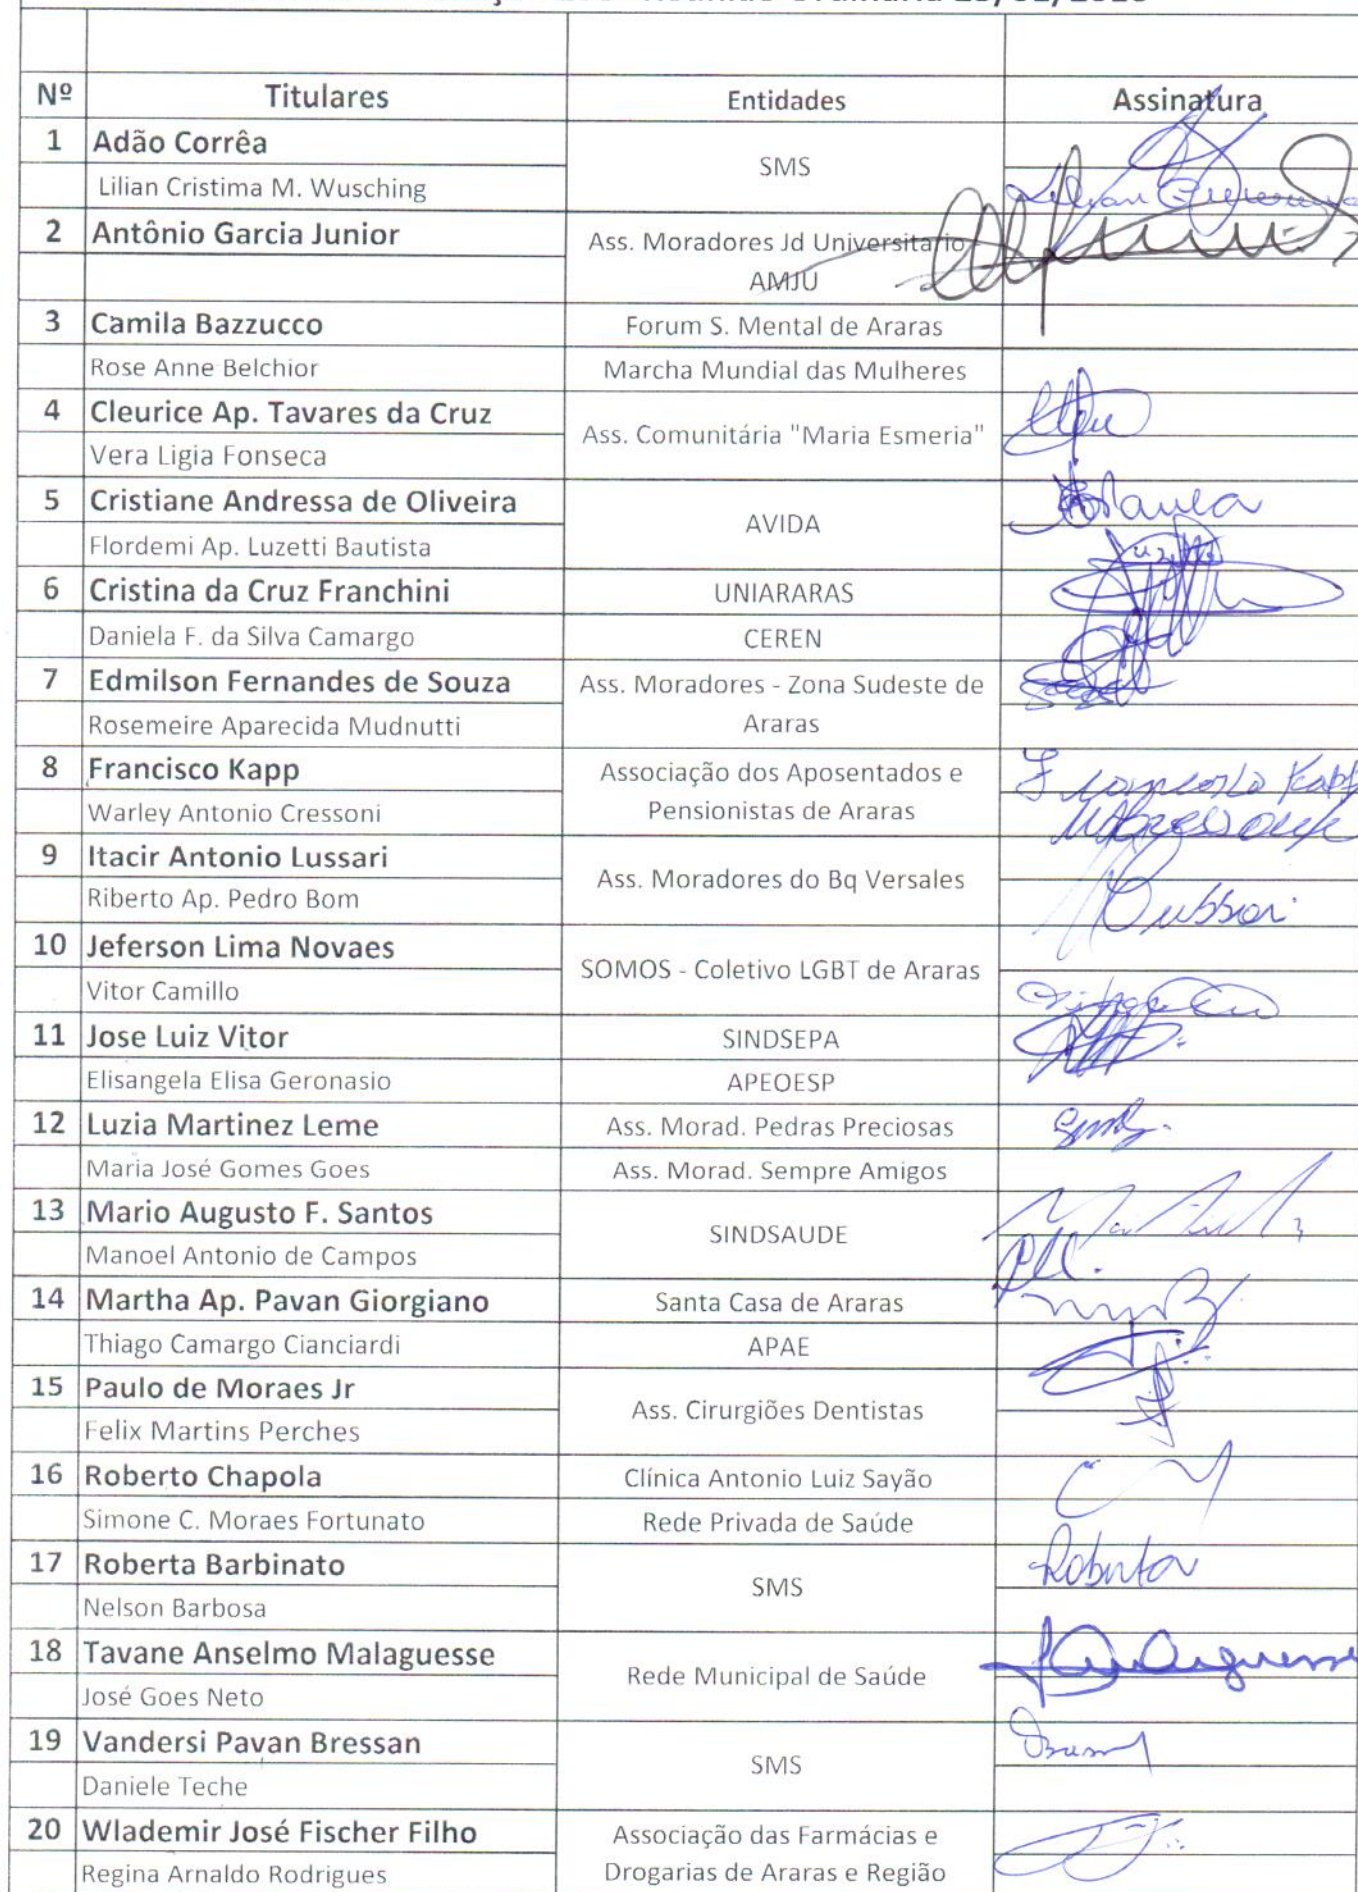 Nº Titulares Entidades Assinatura
1 Adão Corrêa
SMS
Lilian Cristima M. Wusching
2 Antônio Garcia Junior
Ass. Moradores Jd Universitario
AMJU
3 Camila Bazzucco Forum S. Mental de Araras
Rose Anne Belchior Marcha Mundial das Mulheres
4 Cleurice Ap. Tavares da Cruz
Ass. Comunitária "Maria Esmeria"
Vera Ligia Fonseca
5 Cristiane Andressa de Oliveira
AVIDA
Flordemi Ap. Luzetti Bautista
6 Cristina da Cruz Franchini UNIARARAS
Daniela F. da Silva Camargo CEREN
7 Edmilson Fernandes de Souza Ass. Moradores - Zona Sudeste de
Rosemeire Aparecida Mudnutti Araras
8 Francisco Kapp Associação dos Aposentados e Francisco Kapp
Warley Antonio Cressoni Pensionistas de Araras
9 Itacir Antonio Lussari
Ass. Moradores do Bq Versales
Riberto Ap. Pedro Bom
10 Jeferson Lima Novaes
SOMOS - Coletivo LGBT de Araras
Vitor Camillo
11 Jose Luiz Vitor SINDSEPA
Elisangela Elisa Geronasio APEOESP
12 Luzia Martinez Leme Ass. Morad. Pedras Preciosas
Maria José Gomes Goes Ass. Morad. Sempre Amigos
13 Mario Augusto F. Santos
SINDSAUDE
Manoel Antonio de Campos
14 Martha Ap. Pavan Giorgiano Santa Casa de Araras
Thiago Camargo Cianciardi APAE
15 Paulo de Moraes Jr
Ass. Cirurgiões Dentistas
Felix Martins Perches
16 Roberto Chapola Clínica Antonio Luiz Sayão
Simone C. Moraes Fortunato Rede Privada de Saúde
17 Roberta Barbinato Roberta
SMS
Nelson Barbosa
18 Tavane Anselmo Malaguesse
Rede Municipal de Saúde
José Goes Neto
19 Vandersi Pavan Bressan
SMS
Daniele Teche
20 Wlademir José Fischer Filho Associação das Farmácias e
Regina Arnaldo Rodrigues Drogarias de Araras e Região